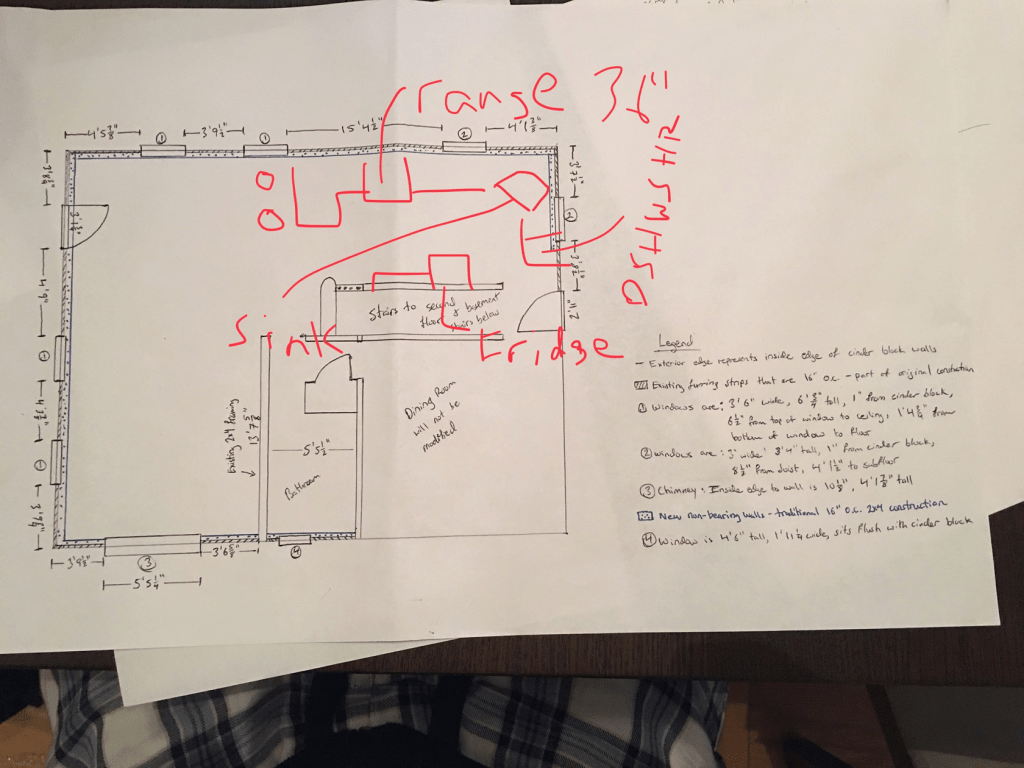 range 36"
DSHWSHR
4'5⅞"
①
3'9½"
①
15'4½"
②
4'1⅞"
3'7½"
②
3'9½"
2'11"
4'9"
①
①
sink
fridge
Stairs to second & basement
floor stairs below
Dining Room
will not be
modified
Existing 2x4 framing
13'7⅝"
5'5½"
Bathroom
3'4½"
③
5'5¼"
3'6⅝"
④
Legend
— Exterior edge represents inside edge of cinder block walls
Existing furring strips that are 16" o.c. - part of original construction
① Windows are: 3'6" wide, 6'¾" tall, 1" from cinder block,
6½" from top of window to ceiling, 1'4½" from
bottom of window to floor
② windows are: 3' wide 3'4" tall, 1" from cinder block,
8½" from joist, 4'1½" to subfloor
③ Chimney: Inside edge to wall is 10⅛", 4'1⅞" tall
New non-bearing walls - traditional 16" o.c. 2x4 construction
④ Window is 4'6" tall, 1'11¼ wide, sits flush with cinder block